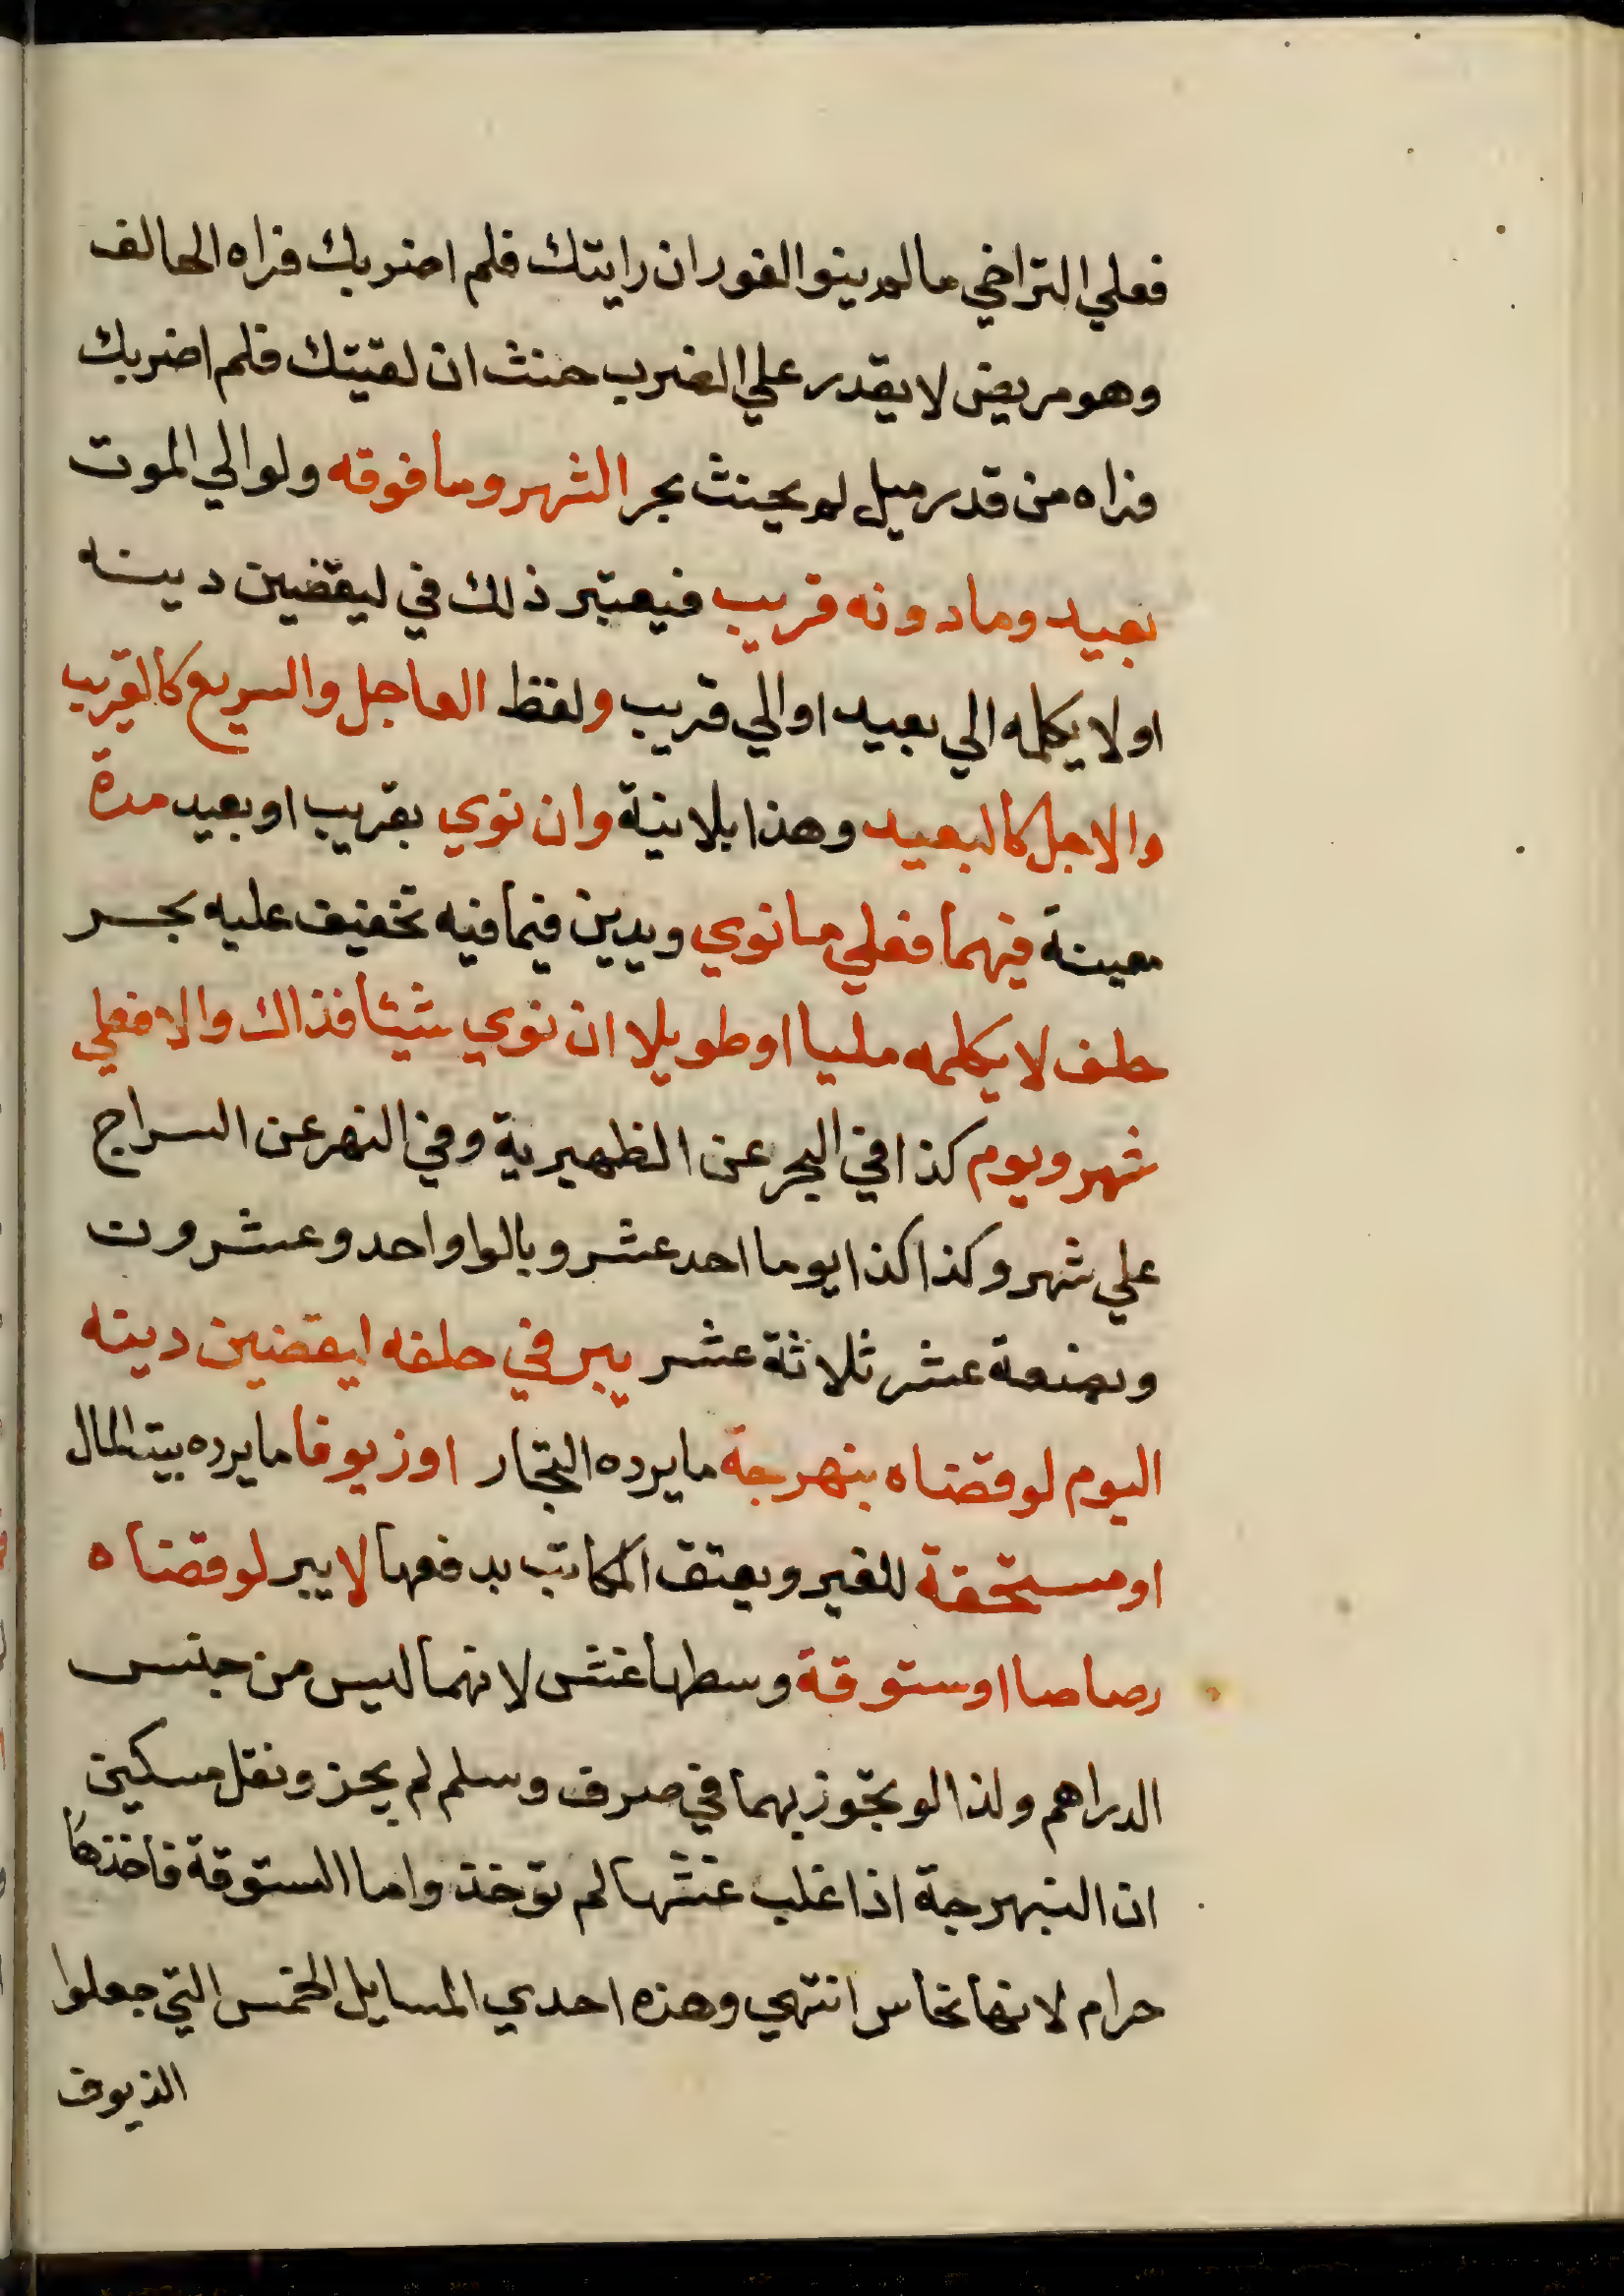 فعلي التراخي مالم ينوا الفور ان رايتك فلم اضربك فراه الحالف
وهو مريض لا يقدر علي الضرب حنث ان لقيتك فلم اضربك
فراه من قدر ميل لم يحنث بحر الشهر وما فوقه ولو الي الموت
بعيد وما دونه قريب فيعتبر ذلك في ليقضين دينه
او لا يكلمه الي بعيد او الي قريب ولفظ العاجل والسريع كالقريب
والاجل كالبعيد وهذا بلا نية وان نوي بقريب او بعيد مدة
معينة فيهما فعلي ما نوي ويدين فيما فيه تخفيف عليه بحر
حلف لا يكلمه مليا او طويلا ان نوي شيئا فذاك والا فعلي
شهر ويوم كذا في البحر عن الظهيرية وفي النهر عن السراج
علي شهر وكذا كذا يوما احد عشر وبالواو احد وعشرون
وبضعة عشر ثلاثة عشر يبر في حلفه ليقضين دينه
اليوم لو قضاه بنهرجة ما يرده التجار او زيوفا ما يرده بيت المال
او مستحقة للغير ويعتق المكاتب بدفعها لا يبر لو قضاه
رصاصا او ستوقة وسطها غش لانهما ليس من جنس
الدراهم ولذا لو تجوز بهما في صرف وسلم لم يجز ونقل مسكين
ان النبهرجة اذا غلب غشها لم توخذ واما الستوقة فاخذها
حرام لانها نحاس انتهي وهذه احدي المسايل الخمس التي جعلوا
الذيوف